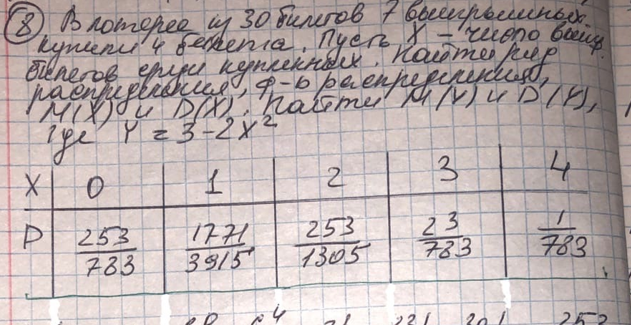 ⑧ В лотерее из 30 билетов 7 выигрышных.
купили 4 билета. Пусть X – число выигр.
билетов среди купленных. Найти ряд
распределения, ф-ю распределения,
M(X) и D(X). Найти M(Y) и D(Y),
где Y = 3-2X²
X 0 1 2 3 4
P 253/783 1771/3915 253/1305 23/783 1/783